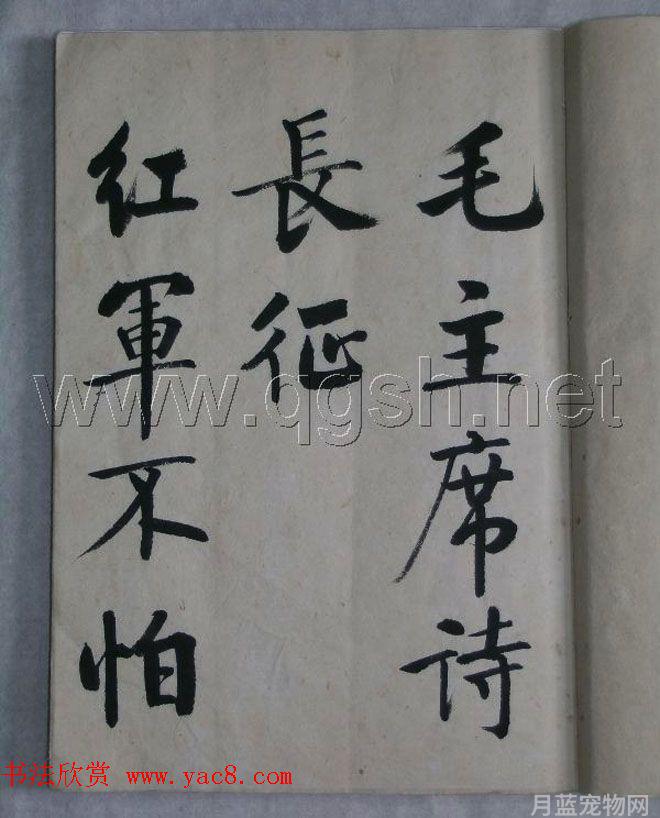 毛主席诗
長征
紅軍不怕
www.qgsh.net
书法欣赏 www.yac8.com
月蓝宠物网